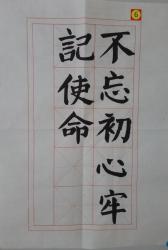 6
不忘初心牢
記使命